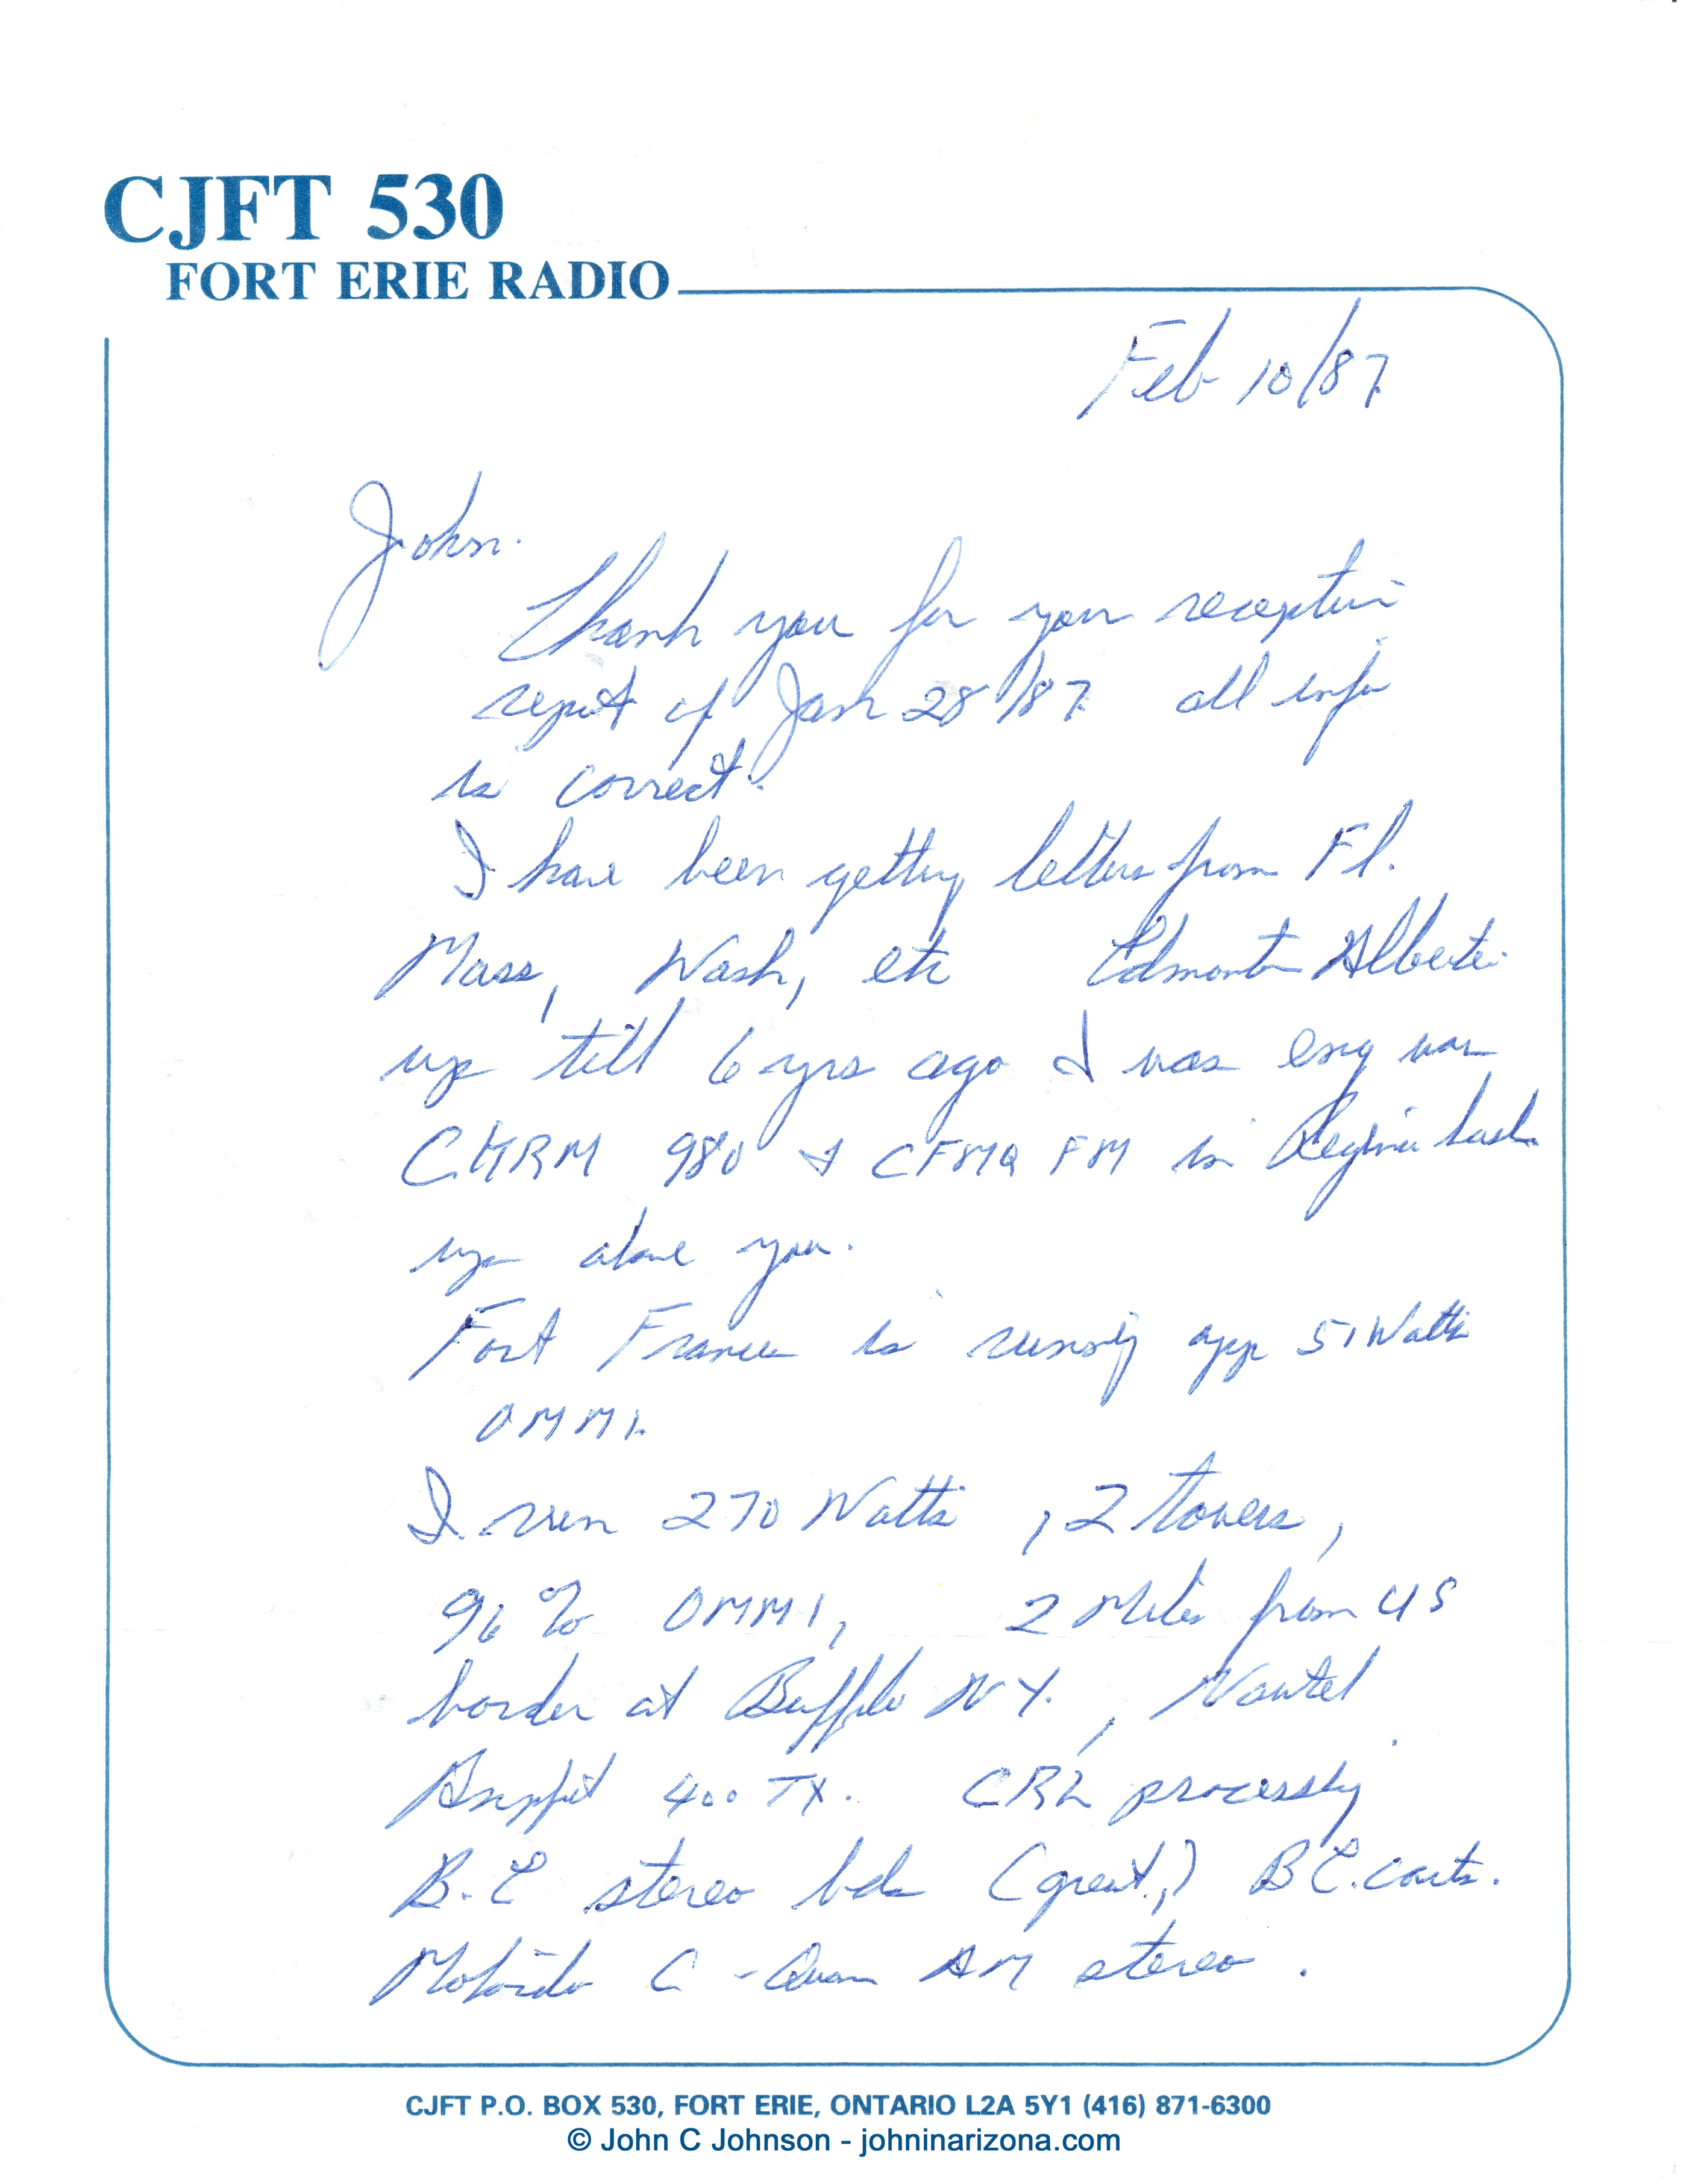 CJFT 530
FORT ERIE RADIO
Feb 10/87
John.
Thank you for your reception
report of Jan 28/87 all info
is correct.
I have been getting letters from Fl.
Mass, Wash, etc Edmonton Alberta.
up till 6 yrs ago I was eng
CKRM 980 & CFMQ FM in Regina Sask.
up above you.
Fort Frances is running app 51 Watts
OMMI.
I run 270 Watts, 2 towers,
96% OMMI, 2 Miles from US
border at Buffalo NY., Nautel
Ampfet 400 TX. CRL processing
B.E stereo bds (great,) B E. carts.
Motorola C-Quam AM stereo.
CJFT P.O. BOX 530, FORT ERIE, ONTARIO L2A 5Y1 (416) 871-6300
© John C Johnson - johninarizona.com